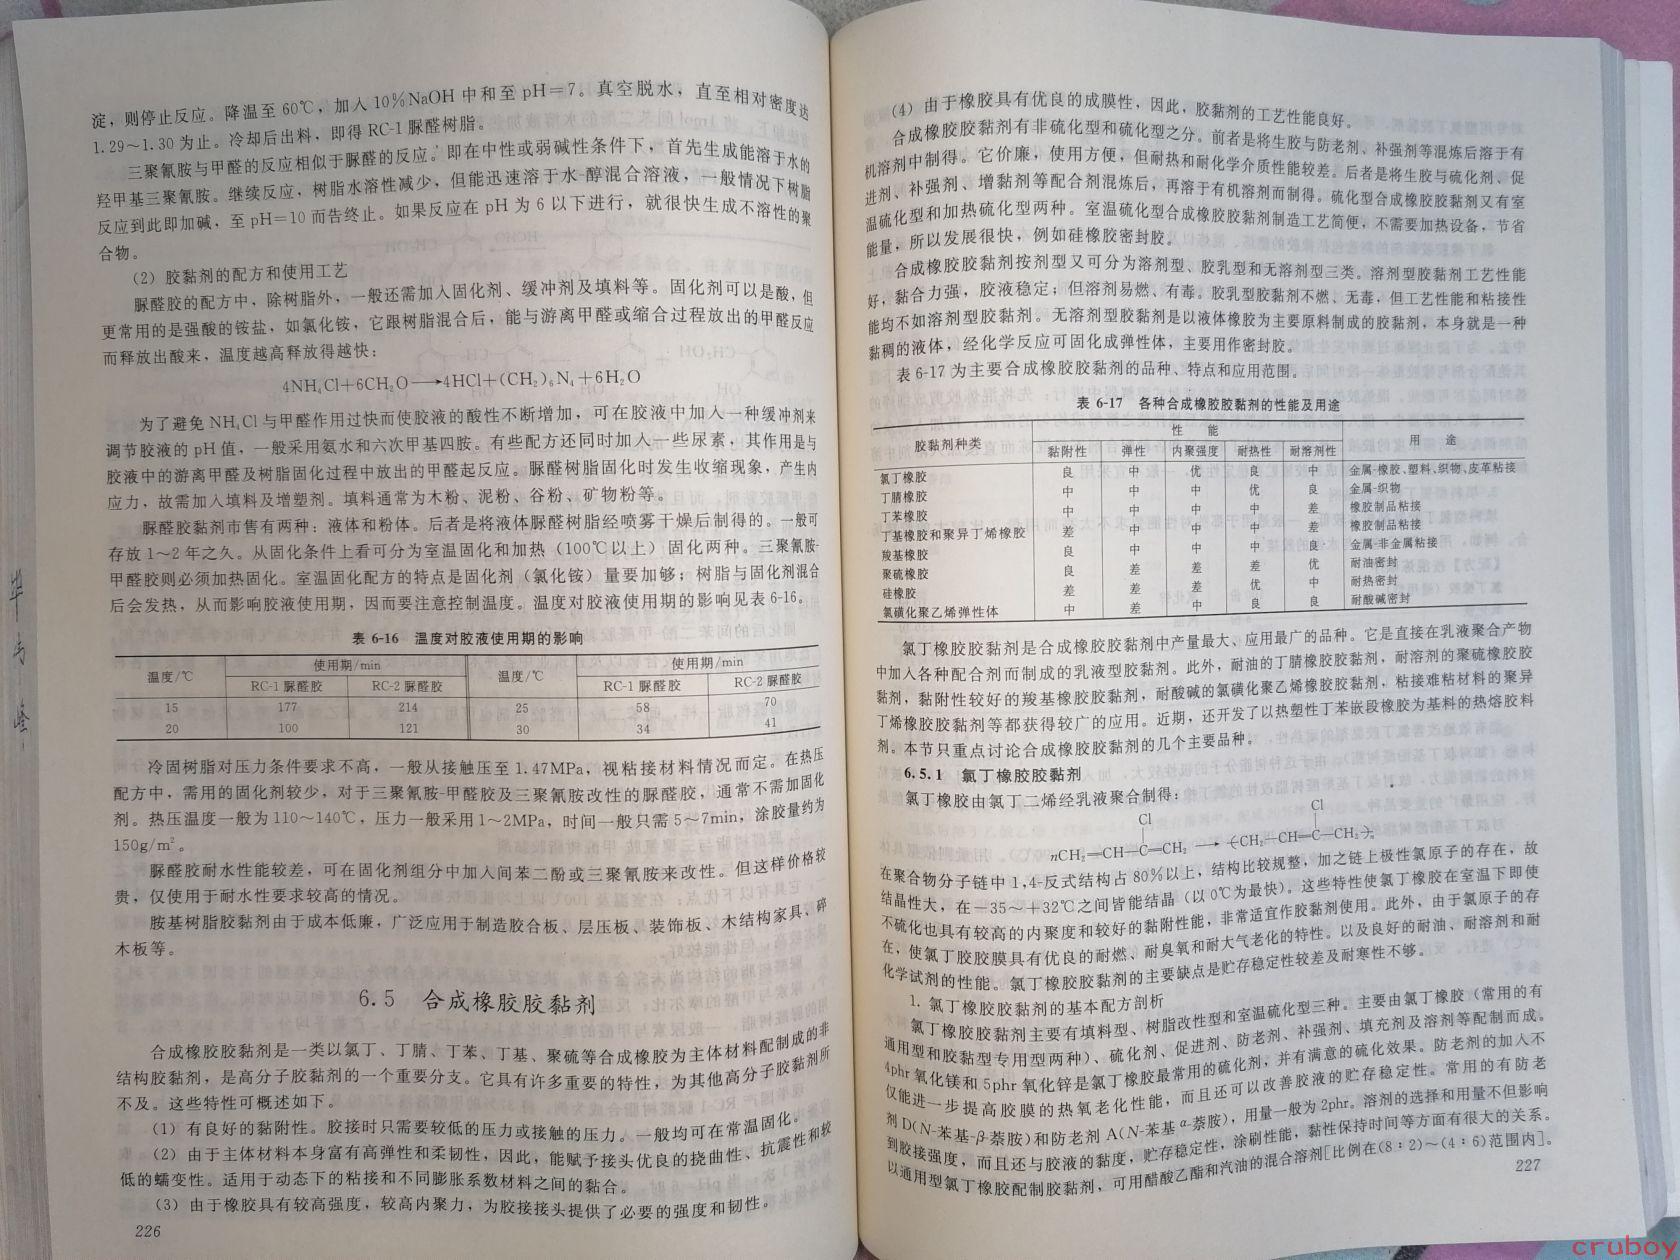 淀，则停止反应。降温至 60℃，加入 10%NaOH 中和至 pH=7。真空脱水，直至相对密度达
1.29～1.30 为止。冷却后出料，即得 RC-1 脲醛树脂。
三聚氰胺与甲醛的反应相似于脲醛的反应。即在中性或弱碱性条件下，首先生成能溶于水的
羟甲基三聚氰胺。继续反应，树脂水溶性减少，但能迅速溶于水-醇混合溶液，一般情况下树脂
反应到此即加碱，至 pH=10 而告终止。如果反应在 pH 为 6 以下进行，就很快生成不溶性的聚
合物。
（2）胶黏剂的配方和使用工艺
脲醛胶的配方中，除树脂外，一般还需加入固化剂、缓冲剂及填料等。固化剂可以是酸，但
更常用的是强酸的铵盐，如氯化铵，它跟树脂混合后，能与游离甲醛或缩合过程放出的甲醛反应
而释放出酸来，温度越高释放得越快：
4NH₄Cl+6CH₂O⟶4HCl+(CH₂)₆N₄+6H₂O
为了避免 NH₄Cl 与甲醛作用过快而使胶液的酸性不断增加，可在胶液中加入一种缓冲剂来
调节胶液的 pH 值，一般采用氨水和六次甲基四胺。有些配方还同时加入一些尿素，其作用是与
胶液中的游离甲醛及树脂固化过程中放出的甲醛起反应。脲醛树脂固化时发生收缩现象，产生内
应力，故需加入填料及增塑剂。填料通常为木粉、泥粉、谷粉、矿物粉等。
脲醛胶黏剂市售有两种：液体和粉体。后者是将液体脲醛树脂经喷雾干燥后制得的。一般可
存放 1～2 年之久。从固化条件上看可分为室温固化和加热（100℃以上）固化两种。三聚氰胺-
甲醛胶则必须加热固化。室温固化配方的特点是固化剂（氯化铵）量要加够；树脂与固化剂混合
后会发热，从而影响胶液使用期，因而要注意控制温度。温度对胶液使用期的影响见表 6-16。
表 6-16 温度对胶液使用期的影响
温度/℃ 使用期/min 温度/℃ 使用期/min
RC-1 脲醛胶 RC-2 脲醛胶 RC-1 脲醛胶 RC-2 脲醛胶
15 177 214 25 58 70
20 100 121 30 34 41
冷固树脂对压力条件要求不高，一般从接触压至 1.47MPa，视粘接材料情况而定。在热压
配方中，需用的固化剂较少，对于三聚氰胺-甲醛胶及三聚氰胺改性的脲醛胶，通常不需加固化
剂。热压温度一般为 110～140℃，压力一般采用 1～2MPa，时间一般只需 5～7min，涂胶量约为
150g/m²。
脲醛胶耐水性能较差，可在固化剂组分中加入间苯二酚或三聚氰胺来改性。但这样价格较
贵，仅使用于耐水性要求较高的情况。
胺基树脂胶黏剂由于成本低廉，广泛应用于制造胶合板、层压板、装饰板、木结构家具、碎
木板等。
6.5 合成橡胶胶黏剂
合成橡胶胶黏剂是一类以氯丁、丁腈、丁苯、丁基、聚硫等合成橡胶为主体材料配制成的非
结构胶黏剂，是高分子胶黏剂的一个重要分支。它具有许多重要的特性，为其他高分子胶黏剂所
不及。这些特性可概述如下。
（1）有良好的黏附性。胶接时只需要较低的压力或接触的压力。一般均可在常温固化。
（2）由于主体材料本身富有高弹性和柔韧性，因此，能赋予接头优良的挠曲性、抗震性和较
低的蠕变性。适用于动态下的粘接和不同膨胀系数材料之间的黏合。
（3）由于橡胶具有较高强度，较高内聚力，为胶接接头提供了必要的强度和韧性。
226
（4）由于橡胶具有优良的成膜性，因此，胶黏剂的工艺性能良好。
合成橡胶胶黏剂有非硫化型和硫化型之分。前者是将生胶与防老剂、补强剂等混炼后溶于有
机溶剂中制得。它价廉，使用方便，但耐热和耐化学介质性能较差。后者是将生胶与硫化剂、促
进剂、补强剂、增黏剂等配合剂混炼后，再溶于有机溶剂而制得。硫化型合成橡胶胶黏剂又有室
温硫化型和加热硫化型两种。室温硫化型合成橡胶胶黏剂制造工艺简便，不需要加热设备，节省
能量，所以发展很快，例如硅橡胶密封胶。
合成橡胶胶黏剂按剂型又可分为溶剂型、胶乳型和无溶剂型三类。溶剂型胶黏剂工艺性能
好，黏合力强，胶液稳定；但溶剂易燃、有毒。胶乳型胶黏剂不燃、无毒，但工艺性能和粘接性
能均不如溶剂型胶黏剂。无溶剂型胶黏剂是以液体橡胶为主要原料制成的胶黏剂，本身就是一种
黏稠的液体，经化学反应可固化成弹性体，主要用作密封胶。
表 6-17 为主要合成橡胶胶黏剂的品种、特点和应用范围。
表 6-17 各种合成橡胶胶黏剂的性能及用途
胶黏剂种类 性 能 用 途
黏附性 弹性 内聚强度 耐热性 耐溶剂性
氯丁橡胶 良 中 优 良 中 金属-橡胶、塑料、织物、皮革粘接
丁腈橡胶 中 中 中 优 良 金属-织物
丁苯橡胶 中 中 中 中 差 橡胶制品粘接
丁基橡胶和聚异丁烯橡胶 差 中 中 中 差 橡胶制品粘接
羧基橡胶 良 中 中 中 良 金属-非金属粘接
聚硫橡胶 良 差 差 差 优 耐油密封
硅橡胶 差 差 差 优 中 耐热密封
氯磺化聚乙烯弹性体 中 差 中 良 良 耐酸碱密封
氯丁橡胶胶黏剂是合成橡胶胶黏剂中产量最大、应用最广的品种。它是直接在乳液聚合产物
中加入各种配合剂而制成的乳液型胶黏剂。此外，耐油的丁腈橡胶胶黏剂，耐溶剂的聚硫橡胶胶
黏剂，黏附性较好的羧基橡胶胶黏剂，耐酸碱的氯磺化聚乙烯橡胶胶黏剂，粘接难粘材料的聚异
丁烯橡胶胶黏剂等都获得较广的应用。近期，还开发了以热塑性丁苯嵌段橡胶为基料的热熔胶料
剂。本节只重点讨论合成橡胶胶黏剂的几个主要品种。
6.5.1 氯丁橡胶胶黏剂
氯丁橡胶由氯丁二烯经乳液聚合制得：
Cl Cl
nCH₂=CH—C=CH₂ ⟶ ⁅CH₂—CH=C—CH₂⁆ₙ
在聚合物分子链中 1,4-反式结构占 80%以上，结构比较规整，加之链上极性氯原子的存在，故
结晶性大，在－35～＋32℃之间皆能结晶（以 0℃为最快）。这些特性使氯丁橡胶在室温下即使
不硫化也具有较高的内聚度和较好的黏附性能，非常适宜作胶黏剂使用。此外，由于氯原子的存
在，使氯丁胶胶膜具有优良的耐燃、耐臭氧和耐大气老化的特性。以及良好的耐油、耐溶剂和耐
化学试剂的性能。氯丁橡胶胶黏剂的主要缺点是贮存稳定性较差及耐寒性不够。
1. 氯丁橡胶胶黏剂的基本配方剖析
氯丁橡胶胶黏剂主要有填料型、树脂改性型和室温硫化型三种。主要由氯丁橡胶（常用的有
通用型和胶黏型专用型两种）、硫化剂、促进剂、防老剂、补强剂、填充剂及溶剂等配制而成。
4phr 氧化镁和 5phr 氧化锌是氯丁橡胶最常用的硫化剂，并有满意的硫化效果。防老剂的加入不
仅能进一步提高胶膜的热氧老化性能，而且还可以改善胶液的贮存稳定性。常用的有防老
剂 D(N-苯基-β-萘胺)和防老剂 A(N-苯基 α-萘胺)，用量一般为 2phr。溶剂的选择和用量不但影响
到胶接强度，而且还与胶液的黏度，贮存稳定性，涂刷性能，黏性保持时间等方面有很大的关系。
以通用型氯丁橡胶配制胶黏剂，可用醋酸乙酯和汽油的混合溶剂[比例在(8：2)～(4：6)范围内]。
227
cruboy